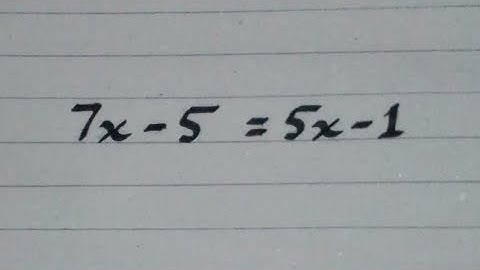 7x - 5 = 5x - 1